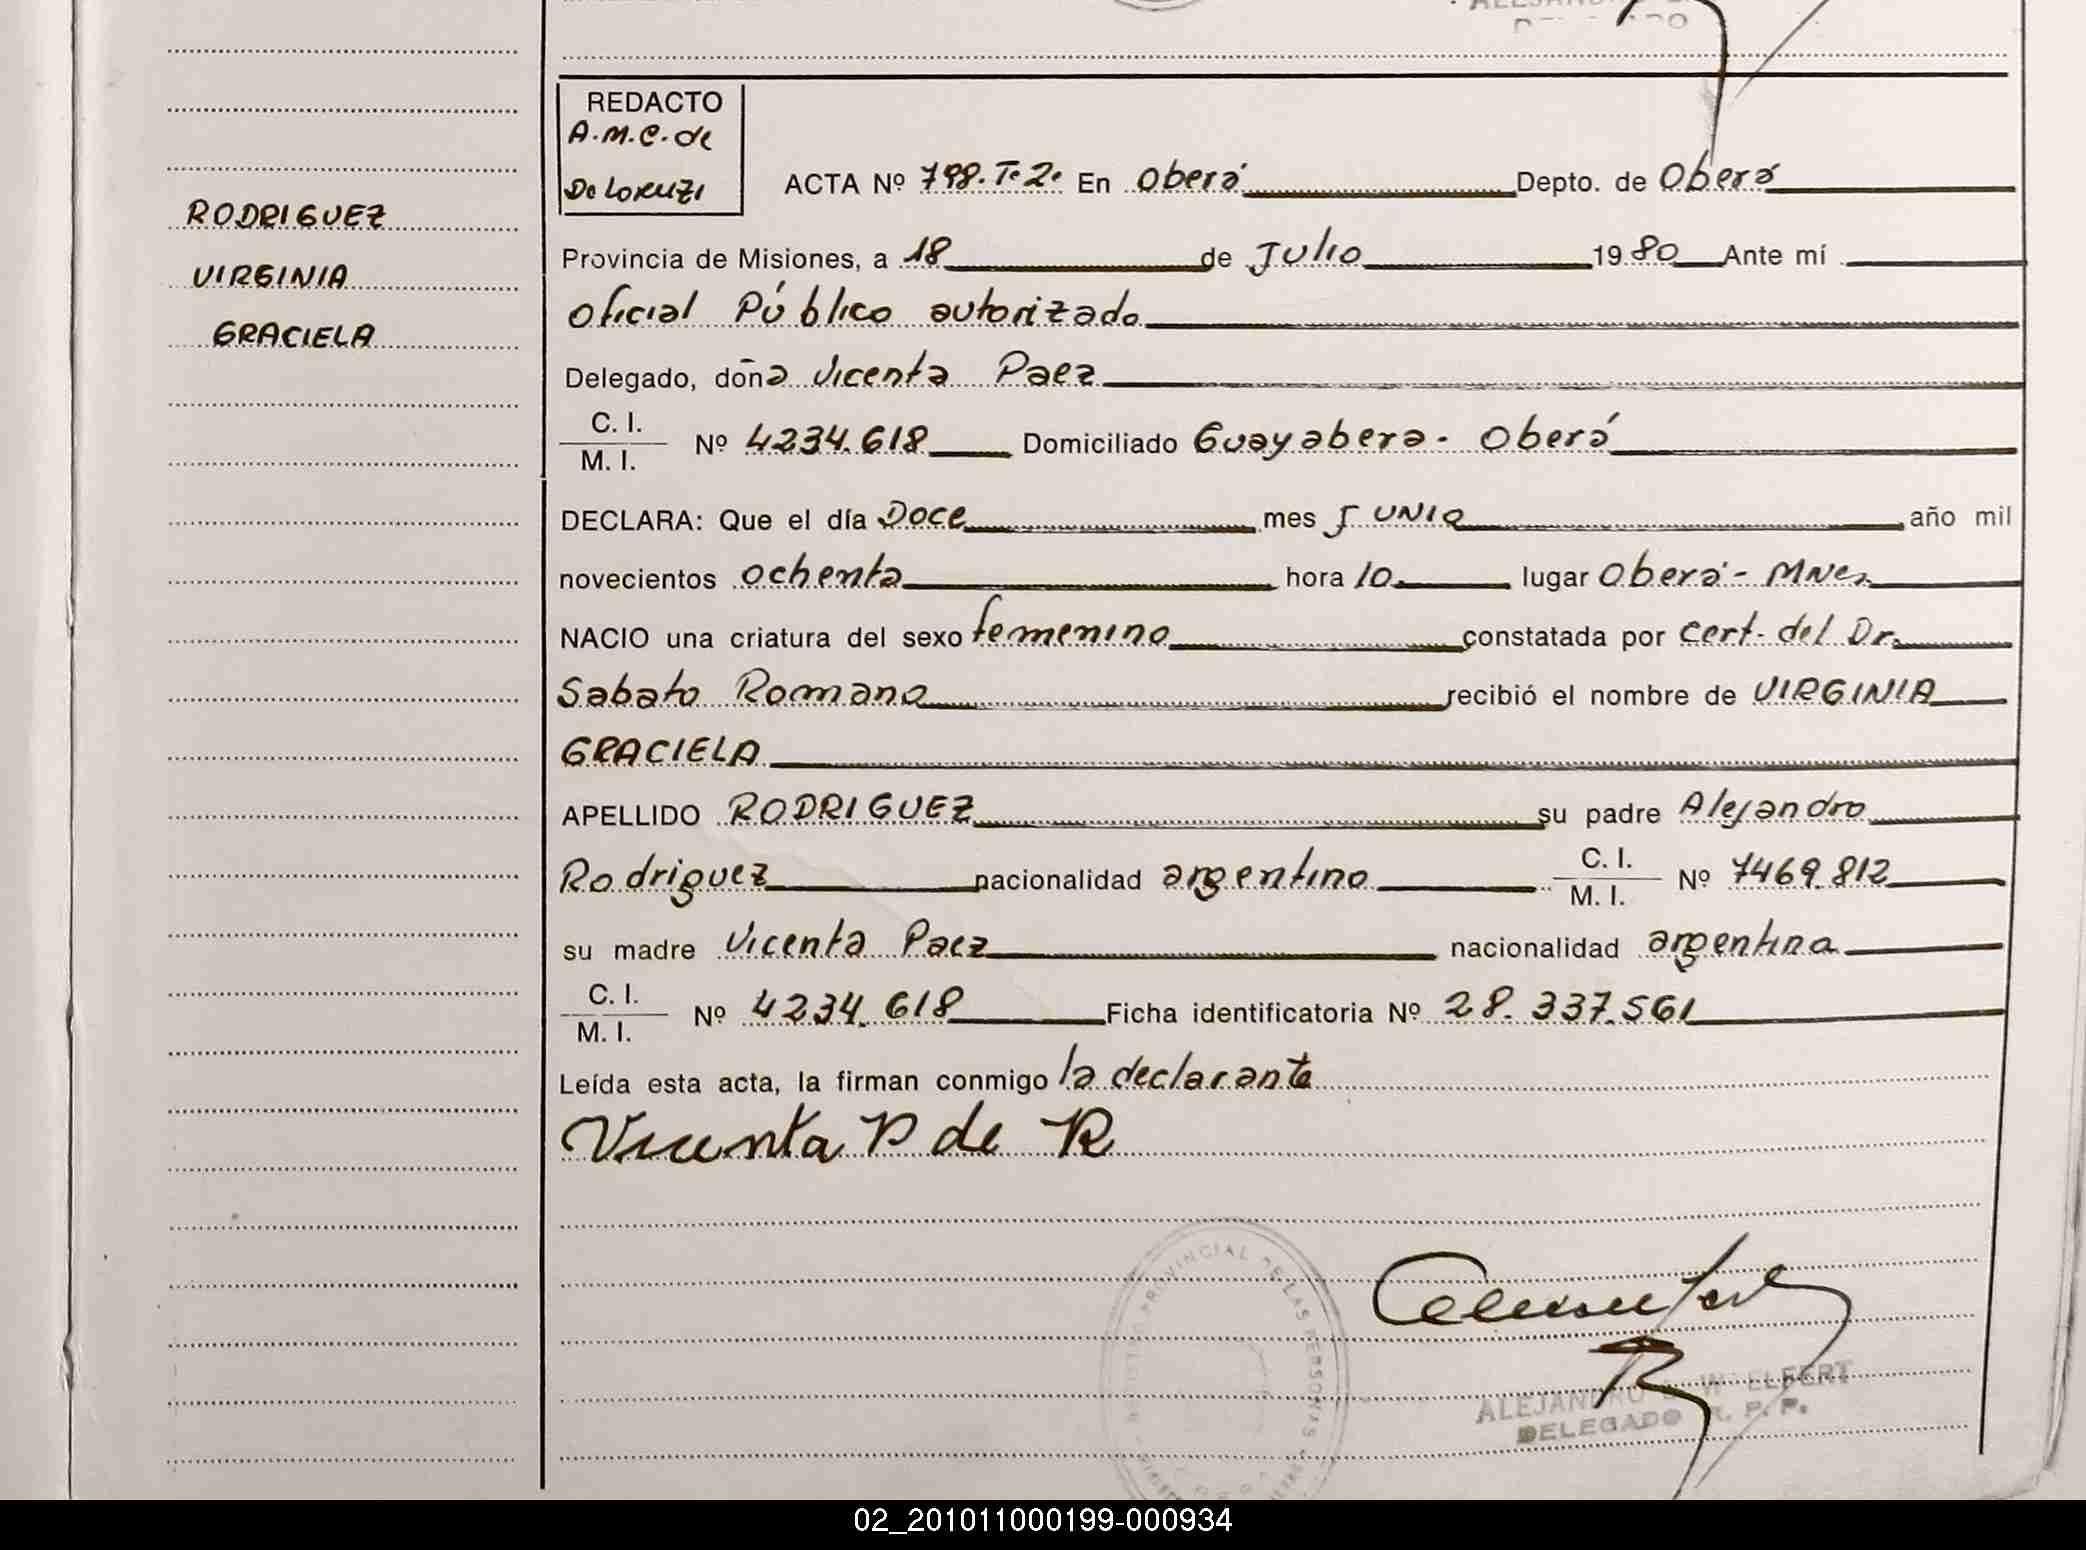 RODRIGUEZ
VIRGINIA
GRACIELA
REDACTO
A.M.C. de
De Lorenzi
ACTA Nº 798. T.2. En Oberá Depto. de Oberá
Provincia de Misiones, a 18 de Julio 1980 Ante mí
Oficial Público autorizado
Delegado, doña Vicenta Paez
C. I.
M. I. Nº 4234.618 Domiciliado Guayabera - Oberá
DECLARA: Que el día Doce mes Junio año mil
novecientos ochenta hora 10 lugar Oberá - Mnes.
NACIO una criatura del sexo femenino constatada por Cert. del Dr.
Sabato Romano recibió el nombre de VIRGINIA
GRACIELA
APELLIDO RODRIGUEZ su padre Alejandro
Rodriguez nacionalidad argentino C. I. M. I. Nº 7469.812
su madre Vicenta Paez nacionalidad argentina
C. I.
M. I. Nº 4234.618 Ficha identificatoria Nº 28.337.561
Leída esta acta, la firman conmigo la declarante
Vicenta P de R
PROVINCIAL DE LAS PERSONAS
ALEJANDRO W ELFERT
DELEGADO R. P. P.
02_201011000199-000934